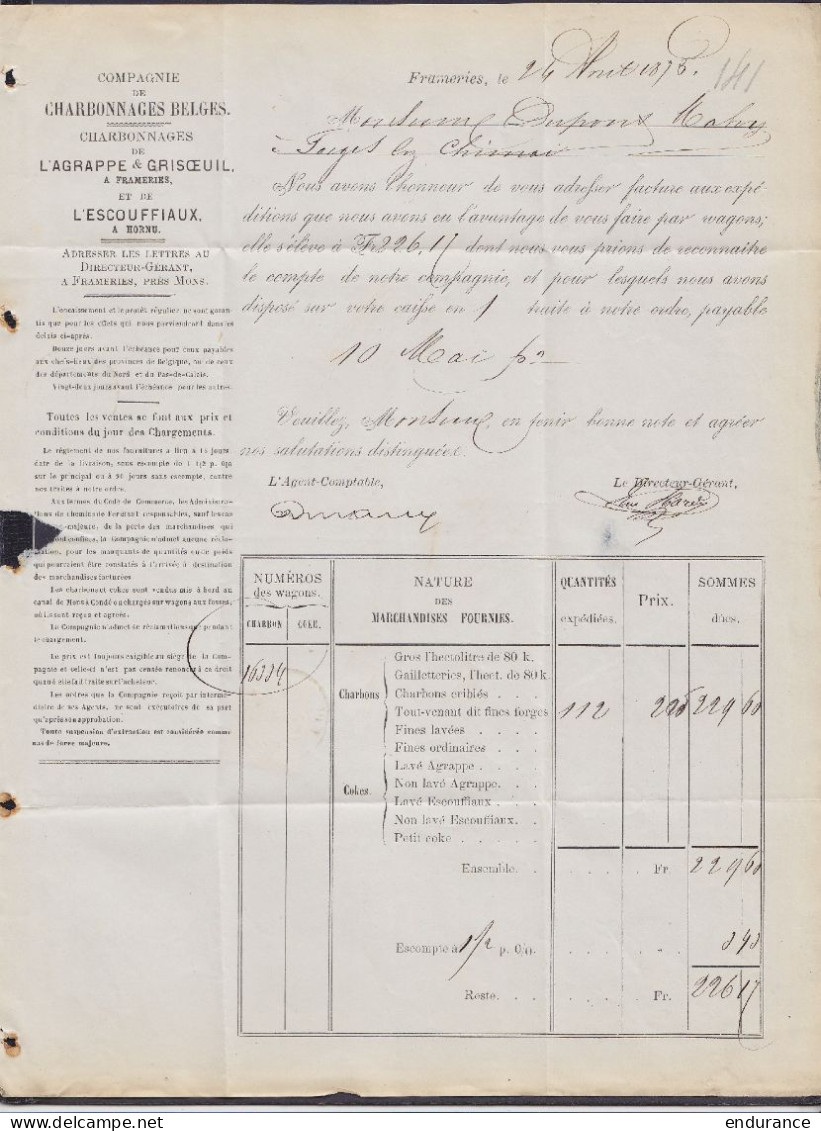 COMPAGNIE
DE
CHARBONNAGES BELGES.
CHARBONNAGES
DE
L'AGRAPPE & GRISŒUIL,
A FRAMERIES,
ET DE
L'ESCOUFFIAUX,
A HORNU.
ADRESSER LES LETTRES AU
DIRECTEUR-GÉRANT,
A FRAMERIES, PRÈS MONS.
L'encaissement et le protêt régulier ne sont garan-
tis que pour les effets qui nous parviendront dans les
délais ci-après.
Douze jours avant l'échéance pour ceux payables
aux chefs-lieux des provinces de Belgique, ou de ceux
des départements du Nord et du Pas-de-Calais.
Vingt-deux jours avant l'échéance pour les autres.
Toutes les ventes se font aux prix et
conditions du jour des Chargements.
Le règlement de nos fournitures a lieu à 15 jours
date de la livraison, sous escompte de 1 1/2 p. 0/0
sur le principal ou à 90 jours sans escompte, contre
nos traites à notre ordre.
Aux termes du Code de Commerce, les Administra-
tions de chemin de fer étant responsables, sauf les cas
majeure, de la perte des marchandises qui
confiées, la Compagnie n'admet aucune récla-
mation, pour les manquants de quantités ou de poids
qui pourraient être constatés à l'arrivée à destination
des marchandises facturées
Les charbons et cokes sont vendus mis à bord au
canal de Mons à Condé ou chargés sur wagons aux fosses,
où ils sont reçus et agréés.
La Compagnie n'admet de réclamations que pendant
le chargement.
Le prix est toujours exigible au siège de la Com-
pagnie et celle-ci n'est pas censée renoncer à ce droit
quand elle fait traite sur l'acheteur.
Les ordres que la Compagnie reçoit par intermé-
diaire de ses Agents, ne sont exécutoires de sa part
qu'après son approbation.
Toute suspension d'extraction est considérée comme
cas de force majeure.
Frameries, le 24 Avril 1875.
141
Monsieur Dupont Malvy
à Forges lez Chimai
Nous avons l'honneur de vous adresser facture aux expé-
ditions que nous avons eu l'avantage de vous faire par wagons;
elle s'élève à Fr 226,17 dont nous vous prions de reconnaitre
le compte de notre compagnie, et pour lesquels nous avons
disposé sur votre caisse en 1 traite à notre ordre, payable
10 Mai
Veuillez, Monsieur, en tenir bonne note et agréer
nos salutations distinguées.
L'Agent-Comptable, Le Directeur-Gérant,
NUMÉROS des wagons. NATURE DES MARCHANDISES FOURNIES. QUANTITÉS expédiées. Prix. SOMMES dûes.
CHARBON COKE.
Gros l'hectolitre de 80 k.
16334 Gailletteries, l'hect. de 80 k.
Charbons Charbons criblés . . .
Tout-venant dit fines forges 112 205 229 60
Fines lavées . . . .
Fines ordinaires . . .
Lavé Agrappe . . . .
Cokes. Non lavé Agrappe. . .
Lavé Escouffiaux . . .
Non lavé Escouffiaux. .
Petit coke . . . . .
Ensemble. . . . . . . Fr. 229 60
Escompte à 1 1/2 p. 0/0. . . . . . " . 3 43
Reste. . . . . . . . Fr. 226 17
endurance